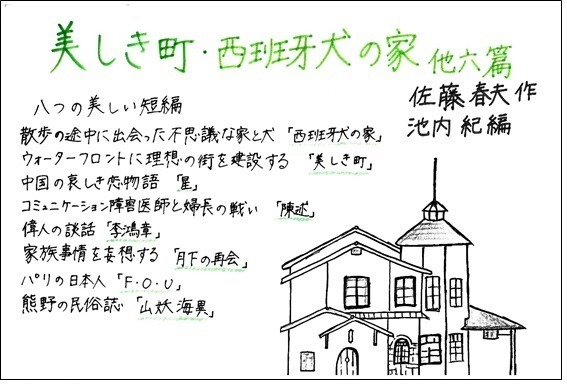 美しき町・西班牙犬の家 他六篇
佐藤春夫作
池内紀編
八つの美しい短編
散歩の途中に出会った不思議な家と犬「西班牙犬の家」
ウォーターフロントに理想の街を建設する「美しき町」
中国の哀しき恋物語「星」
コミュニケーション障害医師と婦長の戦い「陳述」
偉人の談話「李鴻章」
家族事情を妄想する「月下の再会」
パリの日本人「F・O・U」
熊野の民俗誌「山妖海異」